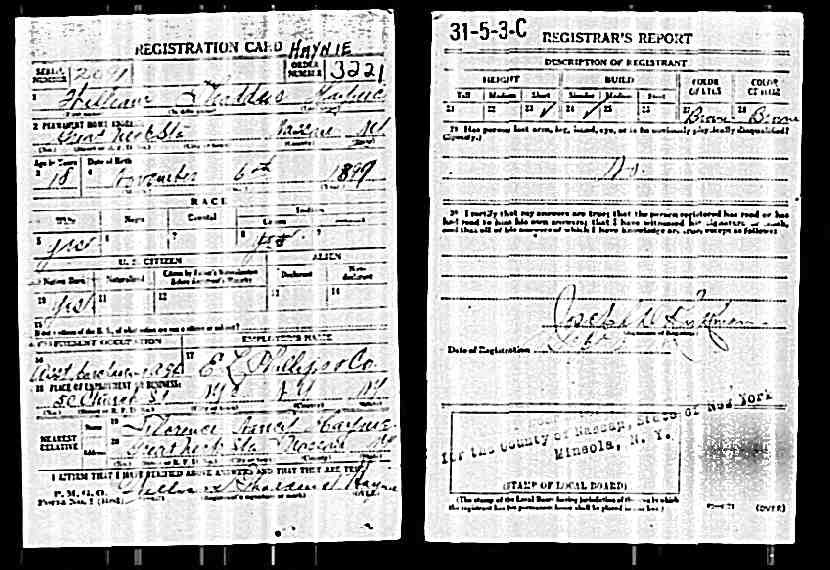 REGISTRATION CARD HAYNIE
SERIAL NUMBER 2091 ORDER NUMBER 3221
1 William Thaddeus Haynie
2 PERMANENT HOME ADDRESS
Great Neck Sta Nassau NY
Age in Years Date of Birth
3 18 4 November 6th 1899
RACE
White Negro Oriental Indian
Citizen
5 yes 6 7 8 9
U. S. CITIZEN ALIEN
Native Born Naturalized Citizen by Father's Naturalization Before Registrant's Majority Declarant Non-declarant
10 yes 11 12 13 14
15
If not a citizen of the U. S., of what nation are you a citizen or subject?
PRESENT OCCUPATION EMPLOYER'S NAME
16 17 E L Phillips Co
18 PLACE OF EMPLOYMENT OR BUSINESS:
50 Church St NYC NY NY
NEAREST RELATIVE
Name 19 Florence Haynie
Address 20 Great Neck Sta Nassau NY
I AFFIRM THAT I HAVE VERIFIED ABOVE ANSWERS AND THAT THEY ARE TRUE
P. M. G. O.
Form No. 1 (Red) William Thaddeus Haynie
(Registrant's signature or mark) (OVER)
31-5-3-C REGISTRAR'S REPORT
DESCRIPTION OF REGISTRANT
HEIGHT BUILD COLOR OF EYES COLOR OF HAIR
Tall Medium Short Slender Medium Stout
21 22 23 ✓ 24 ✓ 25 26 27 Brown 28 Brown
29 Has person lost arm, leg, hand, eye, or is he obviously physically disqualified?
(Specify.)
No.
30 I certify that my answers are true; that the person registered has read or has
had read to him his own answers; that I have witnessed his signature or mark,
and that all of his answers of which I have knowledge are true, except as follows:
Joseph W
Date of Registration
for the County of Nassau, State of New York
Mineola, N. Y.
(STAMP OF LOCAL BOARD)
(The stamp of the Local Board having jurisdiction of the area in which
the registrant has his permanent home shall be placed in this box.)
(OVER)